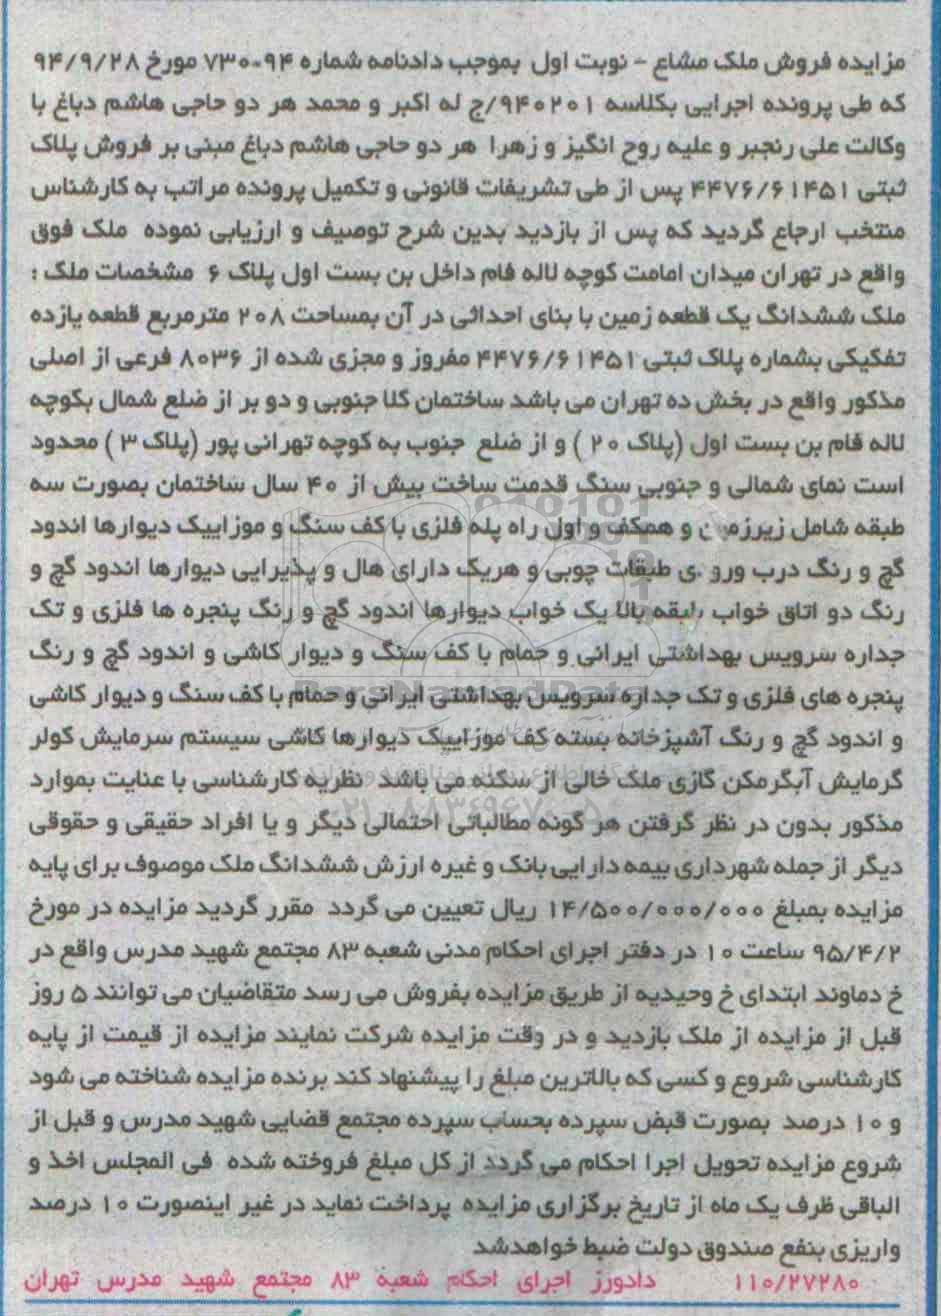 مزایده فروش ملک مشاع - نوبت اول بموجب دادنامه شماره ۹۴-۷۳۰ مورخ ۹۴/۹/۲۸
که طی پرونده اجرایی بکلاسه ۹۴۰۲۰۱/ج له اکبر و محمد هر دو حاجی هاشم دباغ با
وکالت علی رنجبر و علیه روح انگیز و زهرا هر دو حاجی هاشم دباغ مبنی بر فروش پلاک
ثبتی ۴۴۷۶/۶۱۴۵۱ پس از طی تشریفات قانونی و تکمیل پرونده مراتب به کارشناس
منتخب ارجاع گردید که پس از بازدید بدین شرح توصیف و ارزیابی نموده ملک فوق
واقع در تهران میدان امامت کوچه لاله فام داخل بن بست اول پلاک ۶ مشخصات ملک :
ملک ششدانگ یک قطعه زمین با بنای احداثی در آن بمساحت ۲۰۸ مترمربع قطعه یازده
تفکیکی بشماره پلاک ثبتی ۴۴۷۶/۶۱۴۵۱ مفروز و مجزی شده از ۸۰۳۶ فرعی از اصلی
مذکور واقع در بخش ده تهران می باشد ساختمان کلا جنوبی و دو بر از ضلع شمال بکوچه
لاله فام بن بست اول (پلاک ۲۰ ) و از ضلع جنوب به کوچه تهرانی پور (پلاک ۳ ) محدود
است نمای شمالی و جنوبی سنگ قدمت ساخت بیش از ۴۰ سال ساختمان بصورت سه
طبقه شامل زیرزمین و همکف و اول راه پله فلزی با کف سنگ و موزاییک دیوارها اندود
گچ و رنگ درب ورودی طبقات چوبی و هریک دارای هال و پذیرایی دیوارها اندود گچ و
رنگ دو اتاق خواب طبقه بالا یک خواب دیوارها اندود گچ و رنگ پنجره ها فلزی و تک
جداره سرویس بهداشتی ایرانی و حمام با کف سنگ و دیوار کاشی و اندود گچ و رنگ
پنجره های فلزی و تک جداره سرویس بهداشتی ایرانی و حمام با کف سنگ و دیوار کاشی
و اندود گچ و رنگ آشپزخانه بسته کف موزاییک دیوارها کاشی سیستم سرمایش کولر
گرمایش آبگرمکن گازی ملک خالی از سکنه می باشد نظریه کارشناسی با عنایت بموارد
مذکور بدون در نظر گرفتن هر گونه مطالباتی احتمالی دیگر و یا افراد حقیقی و حقوقی
دیگر از جمله شهرداری بیمه دارایی بانک و غیره ارزش ششدانگ ملک موصوف برای پایه
مزایده بمبلغ ۱۴/۵۰۰/۰۰۰/۰۰۰ ریال تعیین می گردد مقرر گردید مزایده در مورخ
۹۵/۴/۲ ساعت ۱۰ در دفتر اجرای احکام مدنی شعبه ۸۳ مجتمع شهید مدرس واقع در
خ دماوند ابتدای خ وحیدیه از طریق مزایده بفروش می رسد متقاضیان می توانند ۵ روز
قبل از مزایده از ملک بازدید و در وقت مزایده شرکت نمایند مزایده از قیمت از پایه
کارشناسی شروع و کسی که بالاترین مبلغ را پیشنهاد کند برنده مزایده شناخته می شود
و ۱۰ درصد بصورت قبض سپرده بحساب سپرده مجتمع قضایی شهید مدرس و قبل از
شروع مزایده تحویل اجرا احکام می گردد از کل مبلغ فروخته شده فی المجلس اخذ و
الباقی ظرف یک ماه از تاریخ برگزاری مزایده پرداخت نماید در غیر اینصورت ۱۰ درصد
واریزی بنفع صندوق دولت ضبط خواهدشد
۱۱۰/۲۷۲۸۰ دادورز اجرای احکام شعبه ۸۳ مجتمع شهید مدرس تهران
ParsNamadData